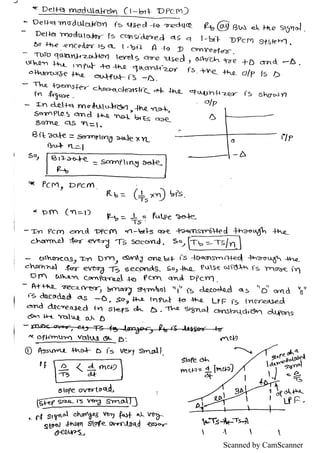 * Delta modulation (1-bit DPCM)
- Delta modulation is used to reduce Rb (or) BW of the signal.
- Delta modulator is considered as a 1-bit DPCM system.
So the encoder is a 1-bit A to D converter.
- Two quantization levels are used, which are +Δ and -Δ.
when the input to the quantizer is +ve the o/p is Δ
otherwise the output is -Δ.
- The transfer characteristic of the quantizer is shown
in figure.
- In delta modulation, the no. of
samples and the no. of bits are
same as n=1.
Bit rate = sampling rate x n
But n=1
So, Bit rate = sampling rate
Rb
o/p
Δ
i/p
-Δ
* PCM, DPCM
Rb = (1/Ts xn) bps.
* DM (n=1)
Rb = 1/Ts = Pulse rate
- In PCM and DPCM n-bits are transmitted through the
channel for every Ts second. So, Tb = Ts/n
- whereas, In DM, only one bit is transmitted through the
channel for every Ts seconds. So, the pulse width is more in
DM when compared to PCM and DPCM.
- At the receiver, binary symbol "1" is decoded as "Δ" and "0"
is decoded as -Δ. So, the input to the LPF is increased
and decreased in steps of Δ. The signal construction depends
on the value of Δ
* optimum value of Δ:
① Assume that Δ is very small.
If Δ/Ts < d/dt m(t)
slope overload,
(step size is very small)
. If signal changes very fast at very
steep then slope overload error
occurs.
m(t)
slope of
m(t) = d/dt [m(t)]
slope of a
demodulated
signal
= Δ/Ts
o/p of the
LPF.
Δ
2Δ
3Δ
4Δ
Ts
1 1 1 1
Scanned by CamScanner